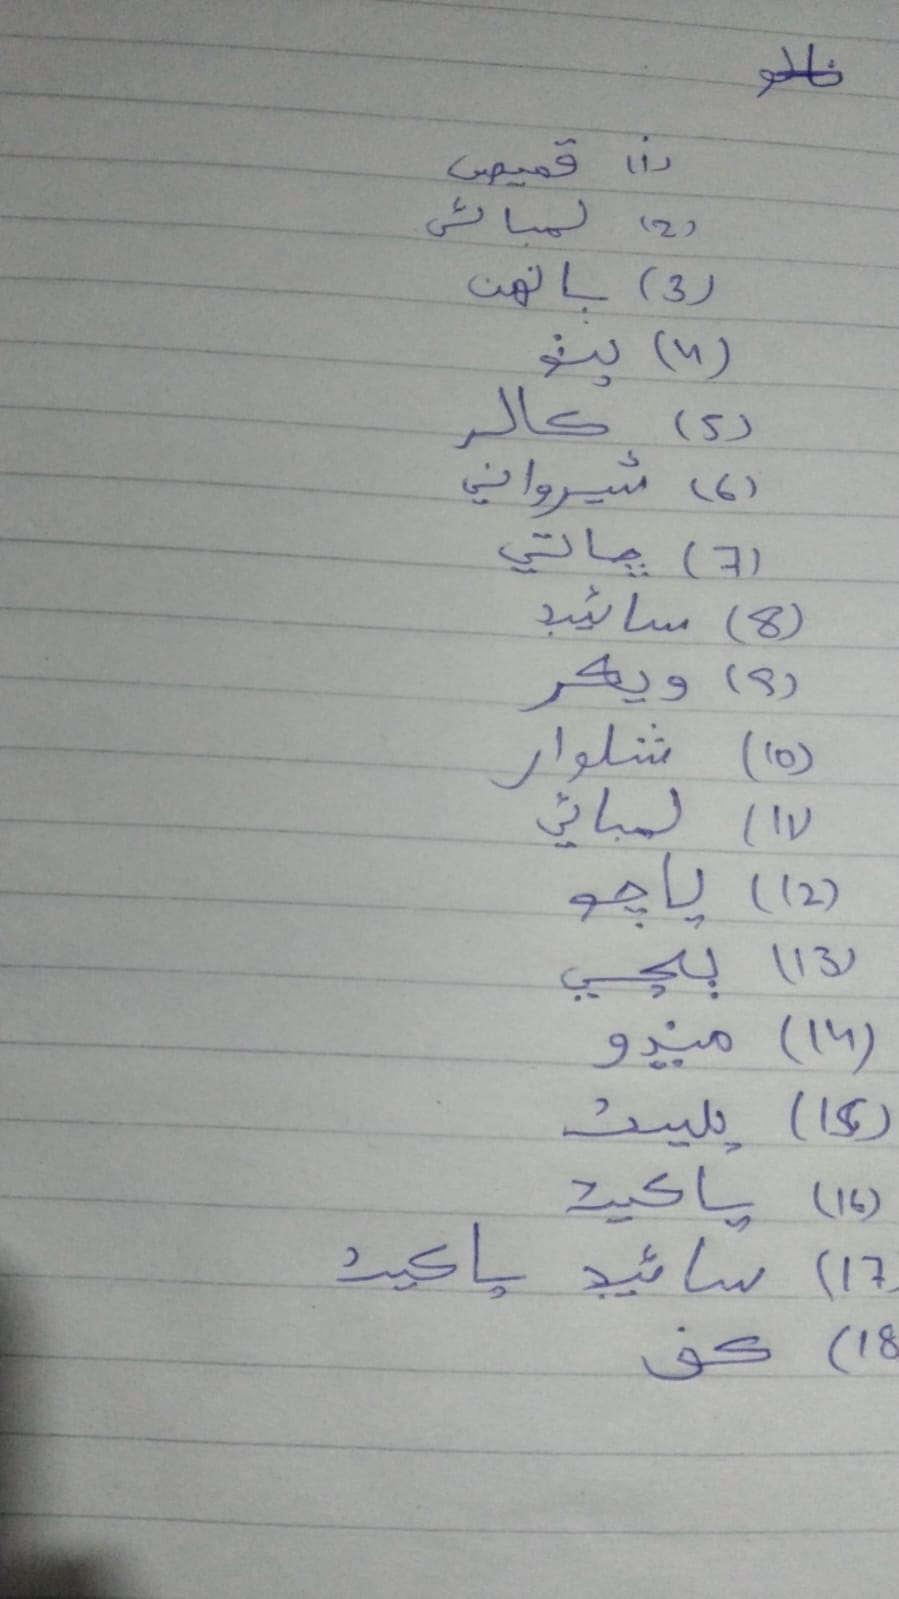 (1) قميص
(2) لمبائي
(3) ٻانهن
(4) پٺو
(5) ڪالر
(6) شيرواني
(7) ڇاتي
(8) سائيڊ
(9) ويڪر
(10) شلوار
(11) لمبائي
(12) پاچو
(14) مينڊو
(15) پليٽ
(16) پاڪيٽ
(17) سائيڊ پاڪيٽ
(18) ڪف